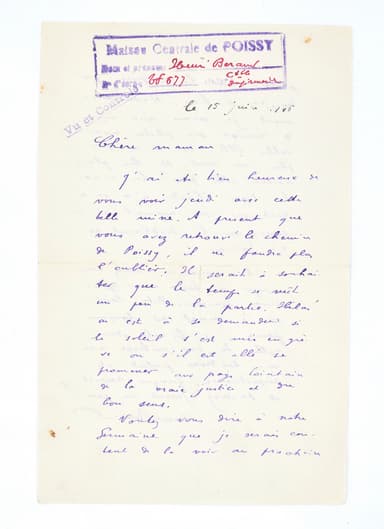 Maison Centrale de POISSY
Nom et prénoms Henri Beraud
N° d'écrou 78677 Clle
Infirmerie
Vu et Contrôlé
le 15 juin
Chère maman
J'ai été bien heureux de
vous voir jeudi avec cette
belle mine. A présent que
vous avez retrouvé le chemin
de Poissy, il ne faudra plus
l'oublier. Il serait à souhai
ter que le temps se mît
un peu de la partie. Hélas
on est à se demander si
le soleil s'est mis en grè
ve ou s'il est allé se
promener aux pays lointain
de la vraie justice et du
bon sens.
Voulez vous dire à notre
Germaine que je serais con-
tent de la voir au prochain